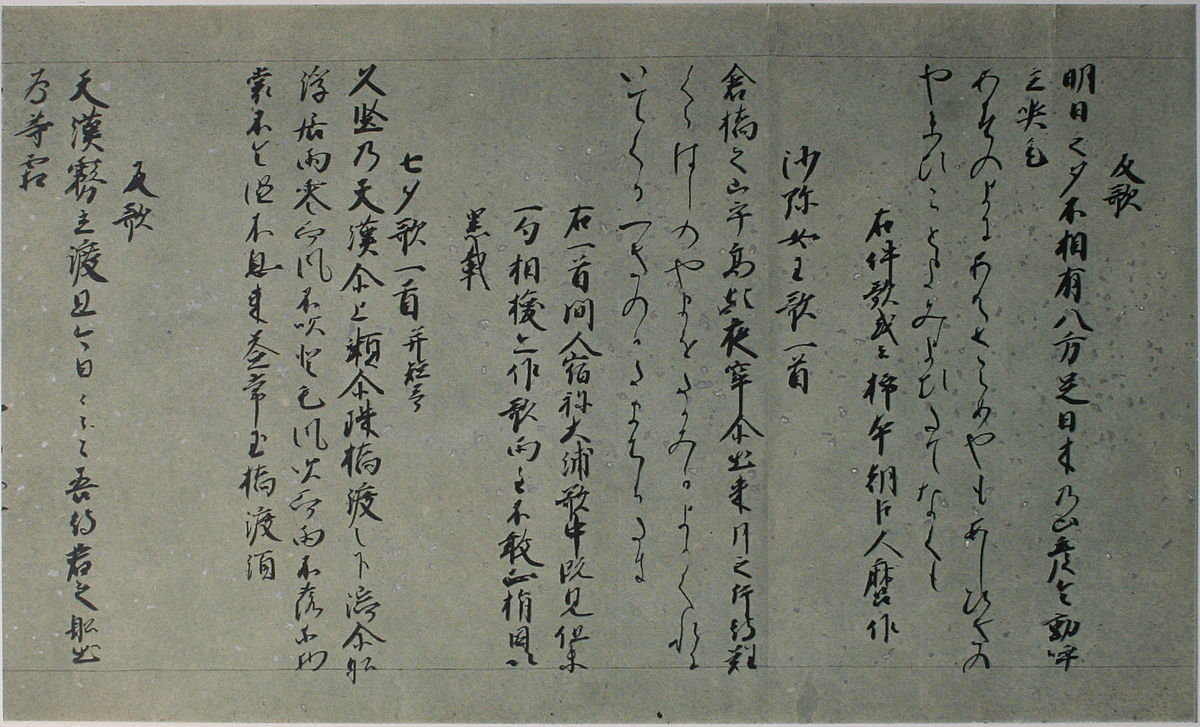 反歌
明日之夕不相有八方足日木乃山彦令動呼
立哭毛
あすのよひあはさらめやもあしひきの
やまひことよみよひたてなくも
右件歌或云柿本朝臣人麿作
沙弥女王歌一首
倉橋之山乎高歟夜牢尓出来月之片待難
くらはしのやまをたかみかよこもりに
いてくるつきのかたまちかたき
右一首間人宿祢大浦歌中既見但末
一句相換亦作歌両主不敢正指因以
累載
七夕歌一首 并短哥
久堅乃天漢尓上瀬尓珠橋渡之下湍尓船
浮居雨零而風不吹登毛風吹而雨不落等物
裳不令湿不息来益常玉橋渡須
反歌
天漢霧立渡且今日々々々吾待君之船出
為等霜